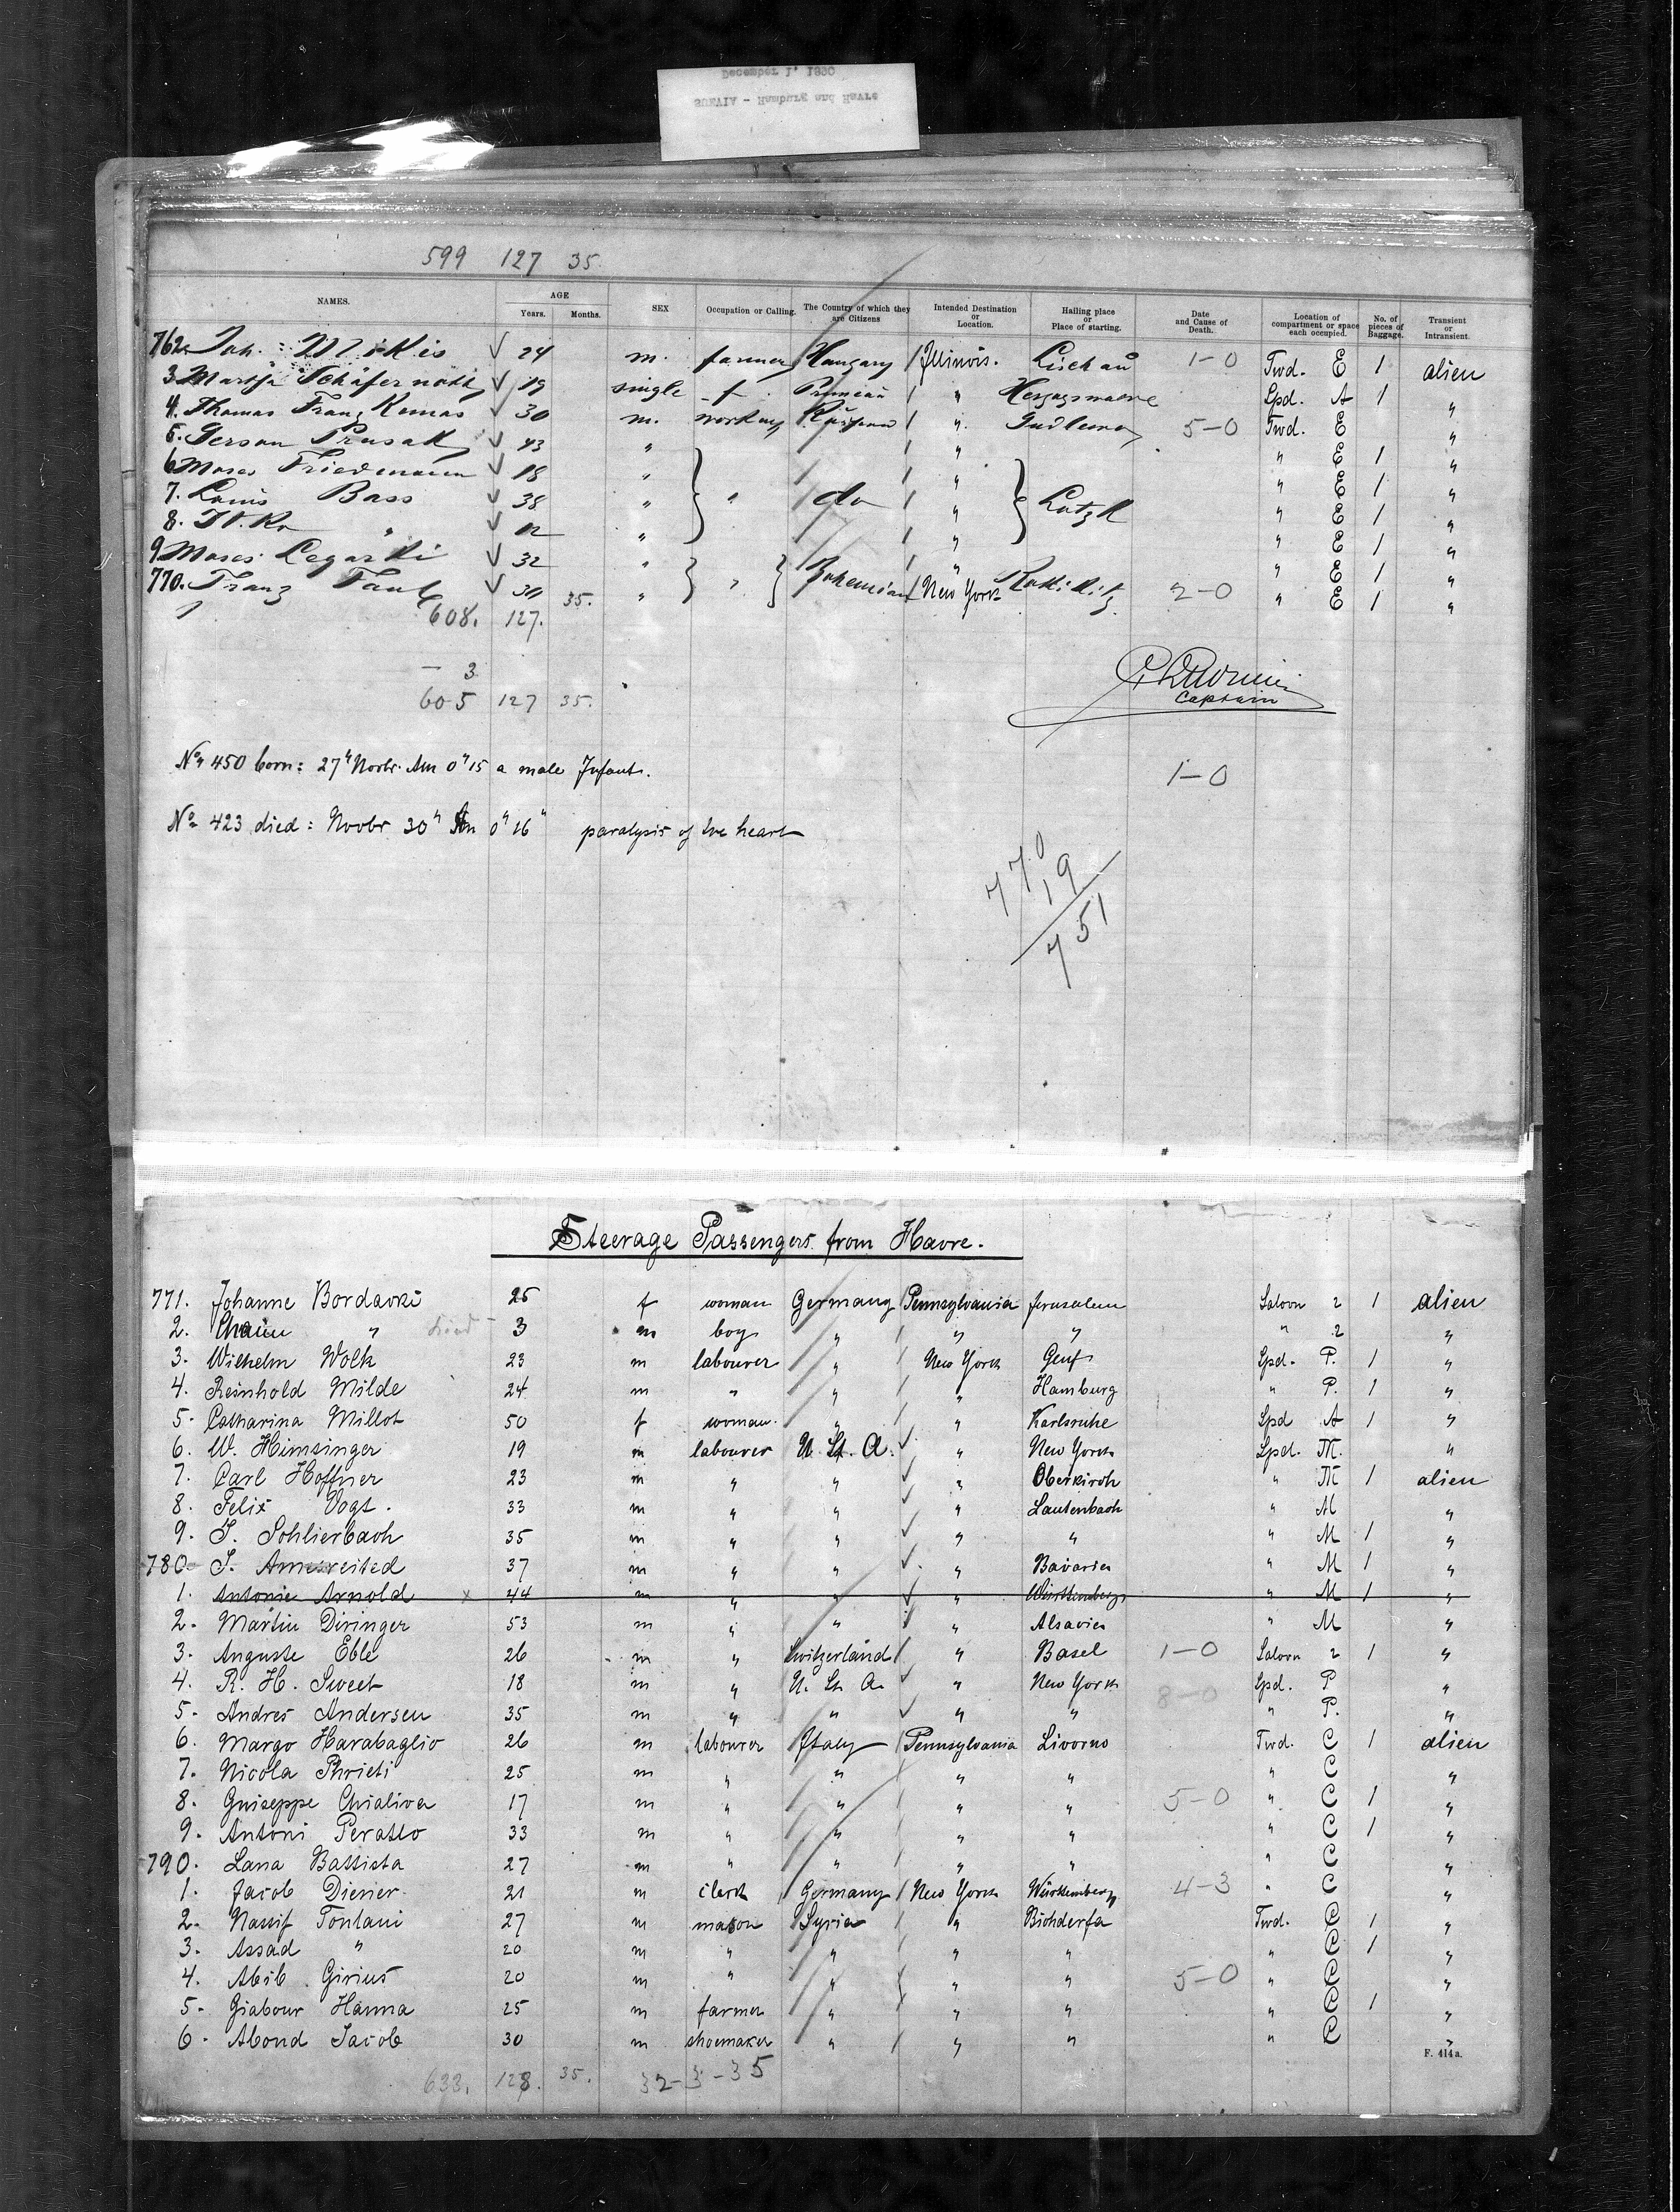 December 1, 1890
SUEVIA - Hamburg and Havre
599 127 35.
NAMES. AGE Years. Months. SEX Occupation or Calling. The Country of which they are Citizens Intended Destination or Location. Hailing place or Place of starting. Date and Cause of Death. Location of compartment or space each occupied. No. of pieces of Baggage. Transient or Intransient.
762. Joh. Mokis 24 m. farmer Hungary Illinois. 1-0 Twd. E 1 alien
3. 19 single f. " Spd. A 1 "
4. Thomas Franz 30 m. " 5-0 Twd. E "
5. Gerson Prusak 43 " " " E 1 "
6. Moses Friedemann 18 " " " E 1 "
7. Louis Bass 38 " " do " Lutzk " E 1 "
8. " 12 " " " E 1 "
9. Moses 32 " " " E 1 "
770. Franz Taub 30 " " Bohemian New York 2-0 " E 1 "
608. 127. 35.
- 3
605 127 35.
Captain
No. 450 born: 27" Novbr. Am 0"15 a male Infant. 1-0
No. 423 died: Novbr 30" Am 0"16" paralysis of the heart
770
19
751
Steerage Passengers from Havre.
771. Johanne Bordavki 25 f woman Germany Pennsylvania Jerusalem Saloon 2 1 alien
2. Chaim " 3 m boy " " " " 2 "
3. Wilhelm Wolk 23 m labourer " New York Genf Spd. P. 1 "
4. Reinhold Milde 24 m " " " Hamburg " P. 1 "
5. Catharina Millot 50 f woman. " " Karlsruhe Spd A 1 "
6. W. Himsinger 19 m labourer U. St. A. " New York Spd. M. "
7. Carl Hoffner 23 m " " " Oberkirch " M 1 alien
8. Felix Vogt. 33 m " " " Lautenbach " M "
9. J. Schlierbach 35 m " " " " " M 1 "
780. J. 37 m " " " Bavaria " M 1 "
1. Antonie Arnold x 44 m " " " Württemberg " M 1 "
2. Martin Diringer 53 m " " " Alsavien " M "
3. Auguste Eble 26 m " Switzerland " Basel 1-0 Saloon 2 1 "
4. R. H. Sweet 18 m " U. St. A. " New York 8-0 Spd. P "
5. Andres Andersen 35 m " " " " " P. "
6. Margo Harabaglio 26 m labourer Italy Pennsylvania Livorno Twd. C 1 alien
7. Nicola Phrieti 25 m " " " " " C "
8. Guiseppe Chialiva 17 m " " " " 5-0 " C 1 "
9. Antoni Peratlo 33 m " " " " " C 1 "
790. Lana Battista 27 m " " " " " C "
1. Jacob Diener 21 m clerk Germany New York Württemberg 4-3 " C "
2. Nassif Tontani 27 m mason Syria " Bichderfa Twd. C 1 "
3. Assad " 20 m " " " " " C 1 "
4. Abib Girius 20 m " " " " 5-0 " C "
5. Giabour Hanna 25 m farmer " " " " C 1 "
6. Abond Jacob 30 m shoemaker " " " " C "
F. 414a.
633. 128. 35. 32-3-35